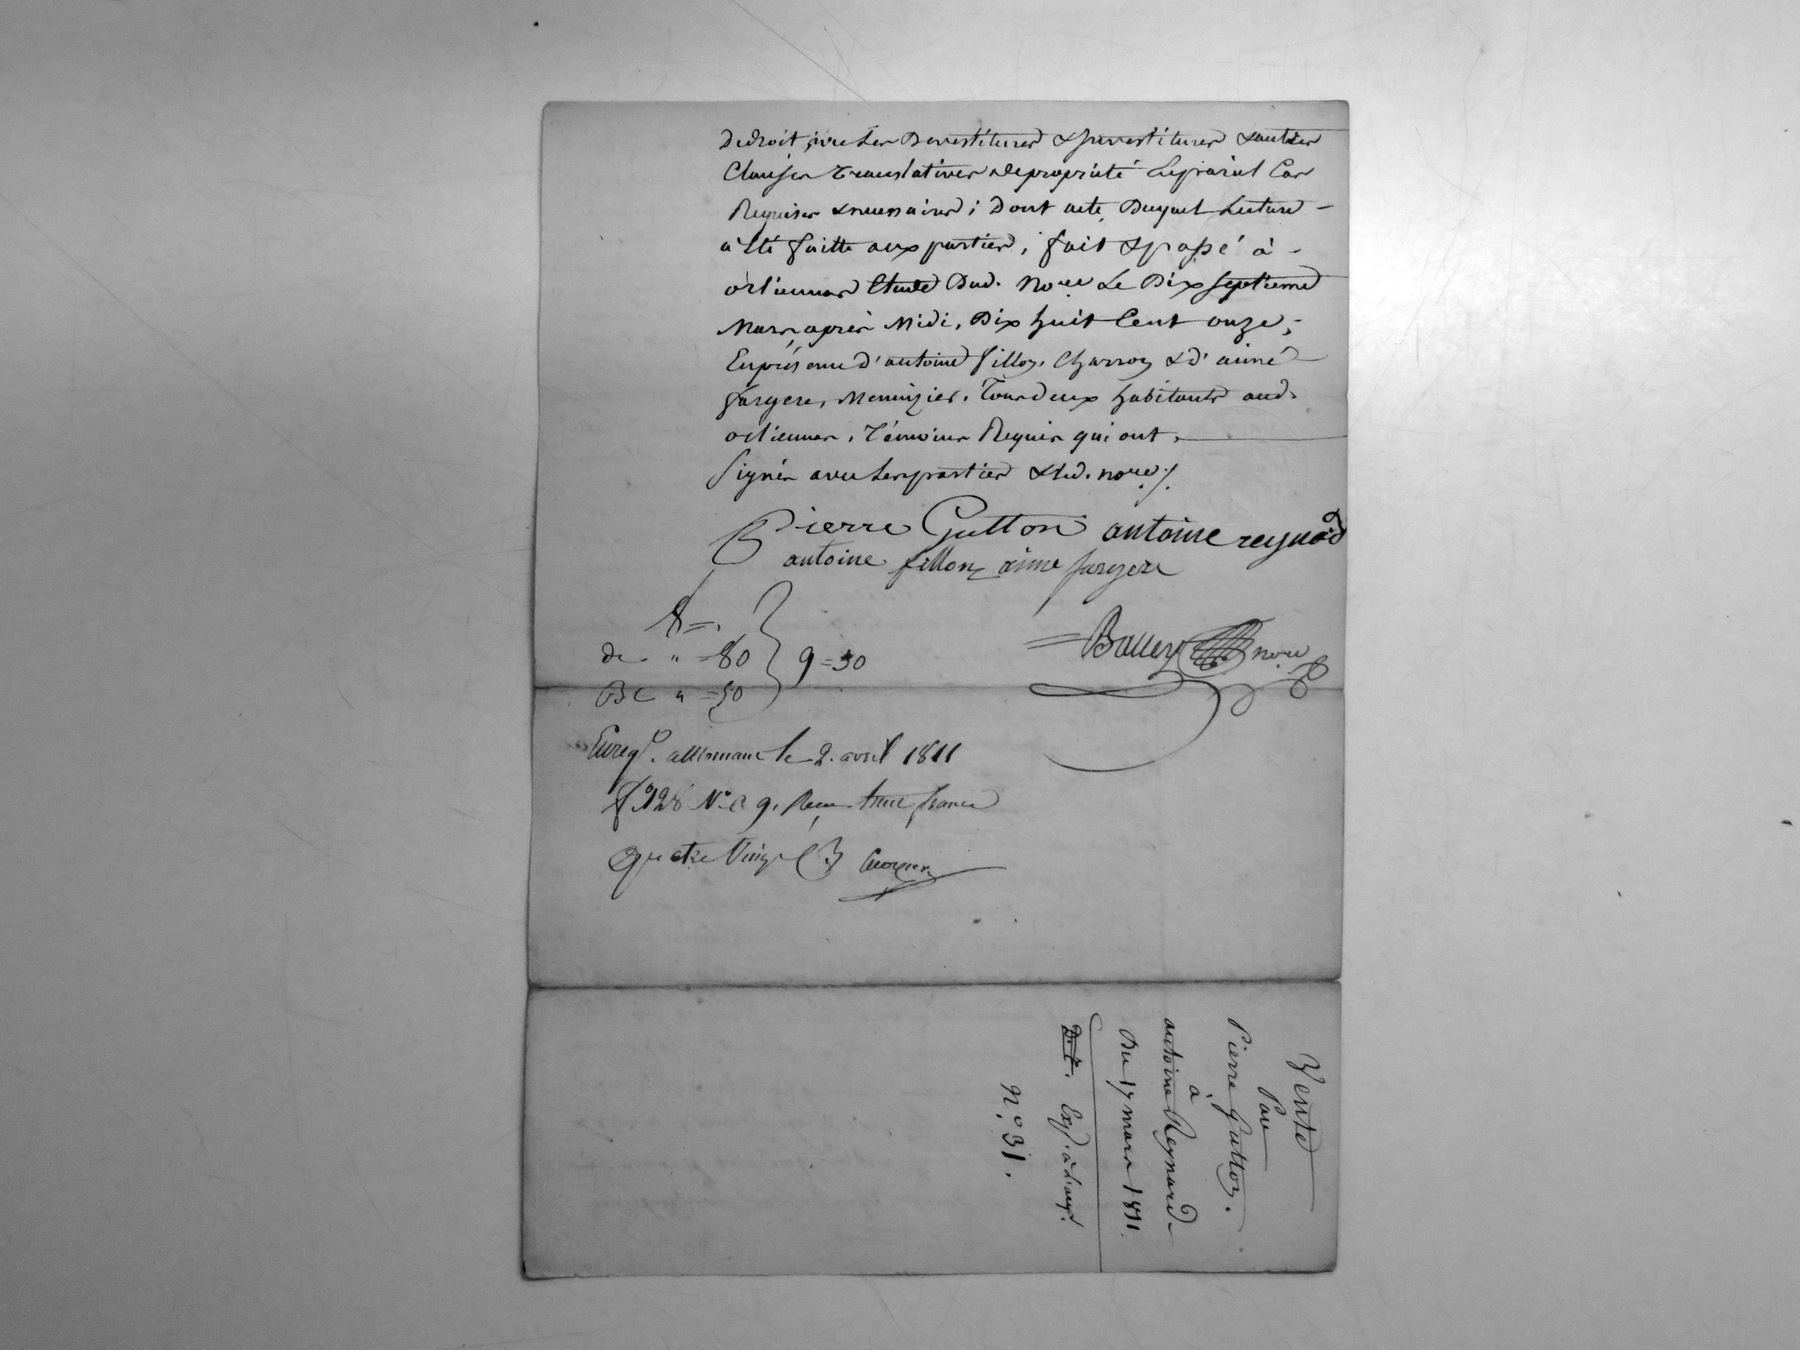 De droit, avec les Devestitures & Investitures & autres
Clauses translatives de propriété Le présent Cas
Requises & nécessaires ; Dont acte, Duquel Lecture –
a été faitte aux parties, fait & passé à –
orliennas Etude Dud. No.re Le Dix septieme
Mars après Midi, Dix huit Cent onze ;
En présence d'antoine fillon, Charron & d'aimé
fargere, Menuizier, Tous deux habitants aud.
orliennas, Témoins Requis qui ont,
Signés avec les parties & led. no.re ./.
Pierre Gutton antoine reynard
antoine fillon aime fargere
8 =
de " = 80 } 9 = 30
" = 50
Balley no.re
Enreg.é a Mornant le 2. avril 1811
f.° 128 N.° 9. Reçu huit francs
quatre Vingt C.
Vente
Par
Pierre Gutton.
à
antoine Reynard
Du 17 mars 1811.
Exp.
N.° 31.